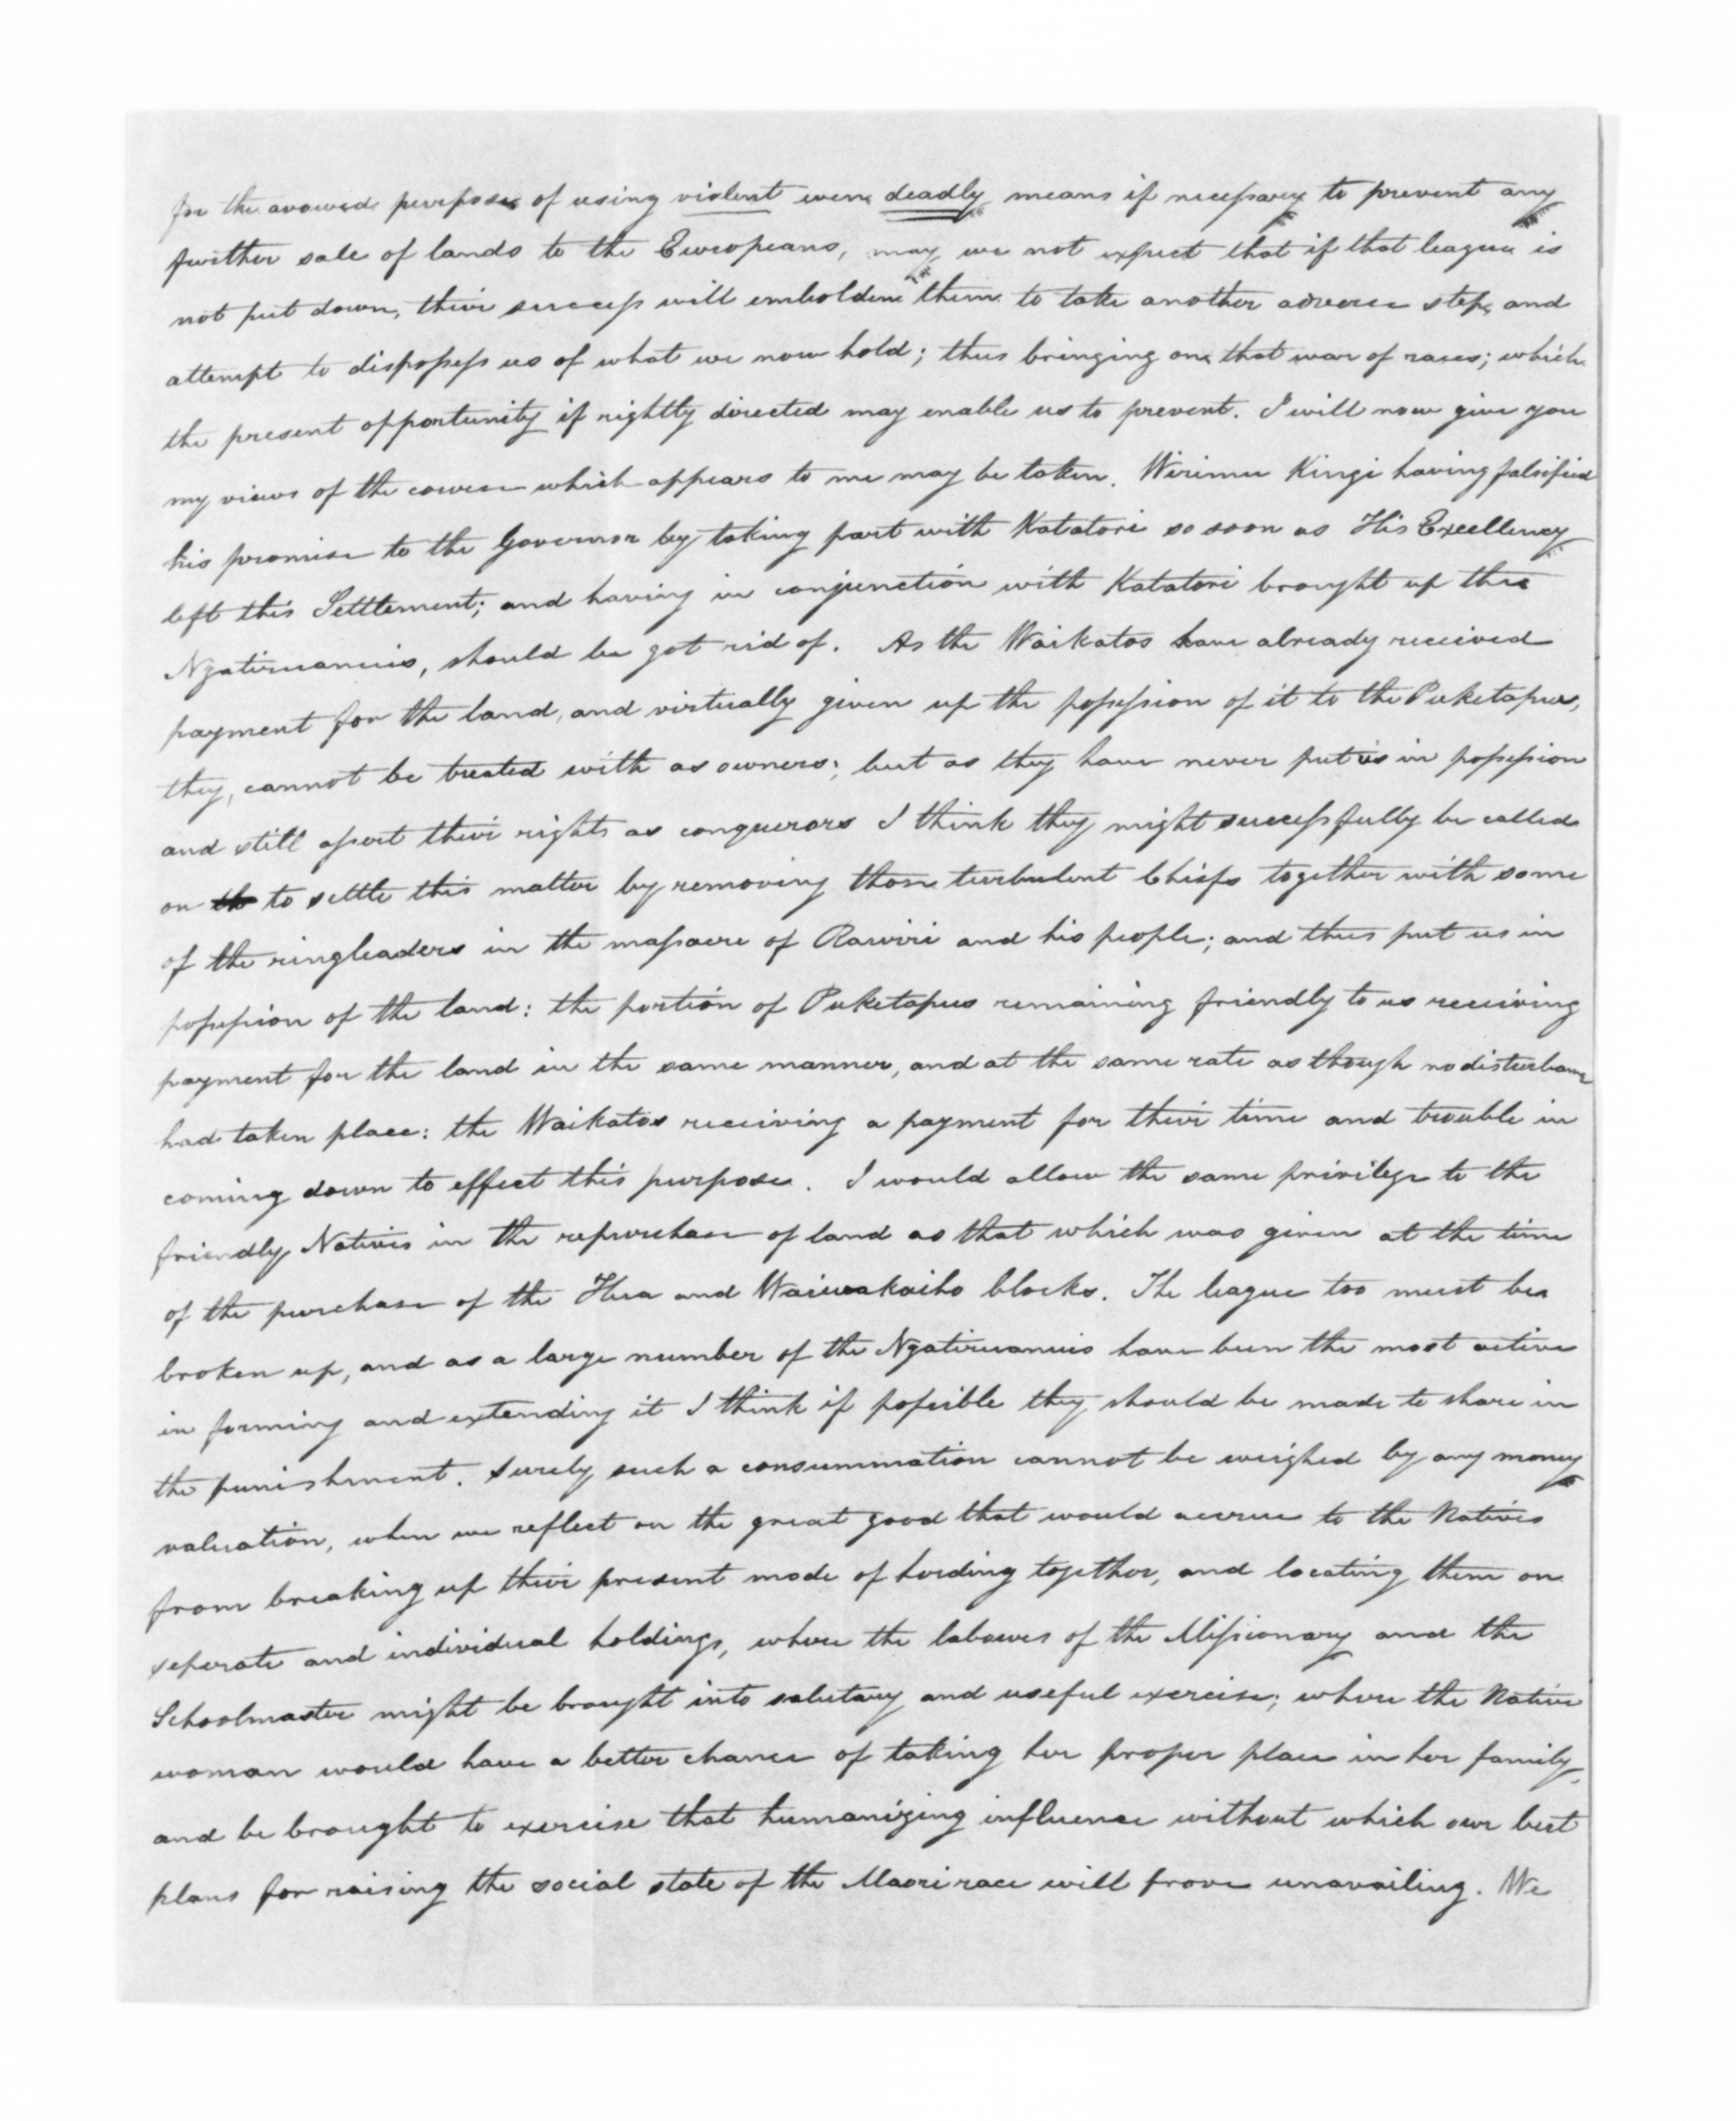 for the avowed purpose of using violent even deadly means if necessary to prevent any
further sale of lands to the Europeans, may we not expect that if that league is
not put down, their success will embolden them to take another adverse step, and
attempt to dispossess us of what we now hold; thus bringing on that war of races; which
the present opportunity if rightly directed may enable us to prevent. I will now give you
my views of the course which appears to me may be taken. Wirimu Kingi having falsified
his promise to the Governor by taking part with Katatori so soon as His Excellency
left this Settlement; and having in conjunction with Katatori brought up the
Ngatiruanuis, should be got rid of. As the Waikatos have already received
payment for the land, and virtually given up the possession of it to the Puketapus,
they, cannot be treated with as owners; but as they have never put us in possession
and still assert their rights as conquerors I think they might successfully be called
on th to settle this matter by removing those turbulent Chiefs together with some
of the ringleaders in the massacre of Rawiri and his people; and thus put us in
possession of the land: the portion of Puketapus remaining friendly to us receiving
payment for the land in the same manner, and at the same rate as though no disturbance
had taken place: the Waikatos receiving a payment for their time and trouble in
coming down to effect this purpose. I would allow the same privilege to the
friendly Natives in the repurchase of land as that which was given at the time
of the purchase of the Hua and Waiwakaiho blocks. The league too must be
broken up, and as a large number of the Ngatiruanuis have been the most active
in forming and extending it I think if possible they should be made to share in
the punishment. Surely such a consummation cannot be weighed by any money
valuation, when we reflect on the great good that would accrue to the Natives
from breaking up their present mode of herding together, and locating them on
seperate and individual holdings, where the labours of the Missionary and the
Schoolmaster might be brought into salutary and useful exercise; where the Native
woman would have a better chance of taking her proper place in her family,
and be brought to exercise that humanizing influence without which our best
plans for raising the social state of the Maori race will prove unavailing. We